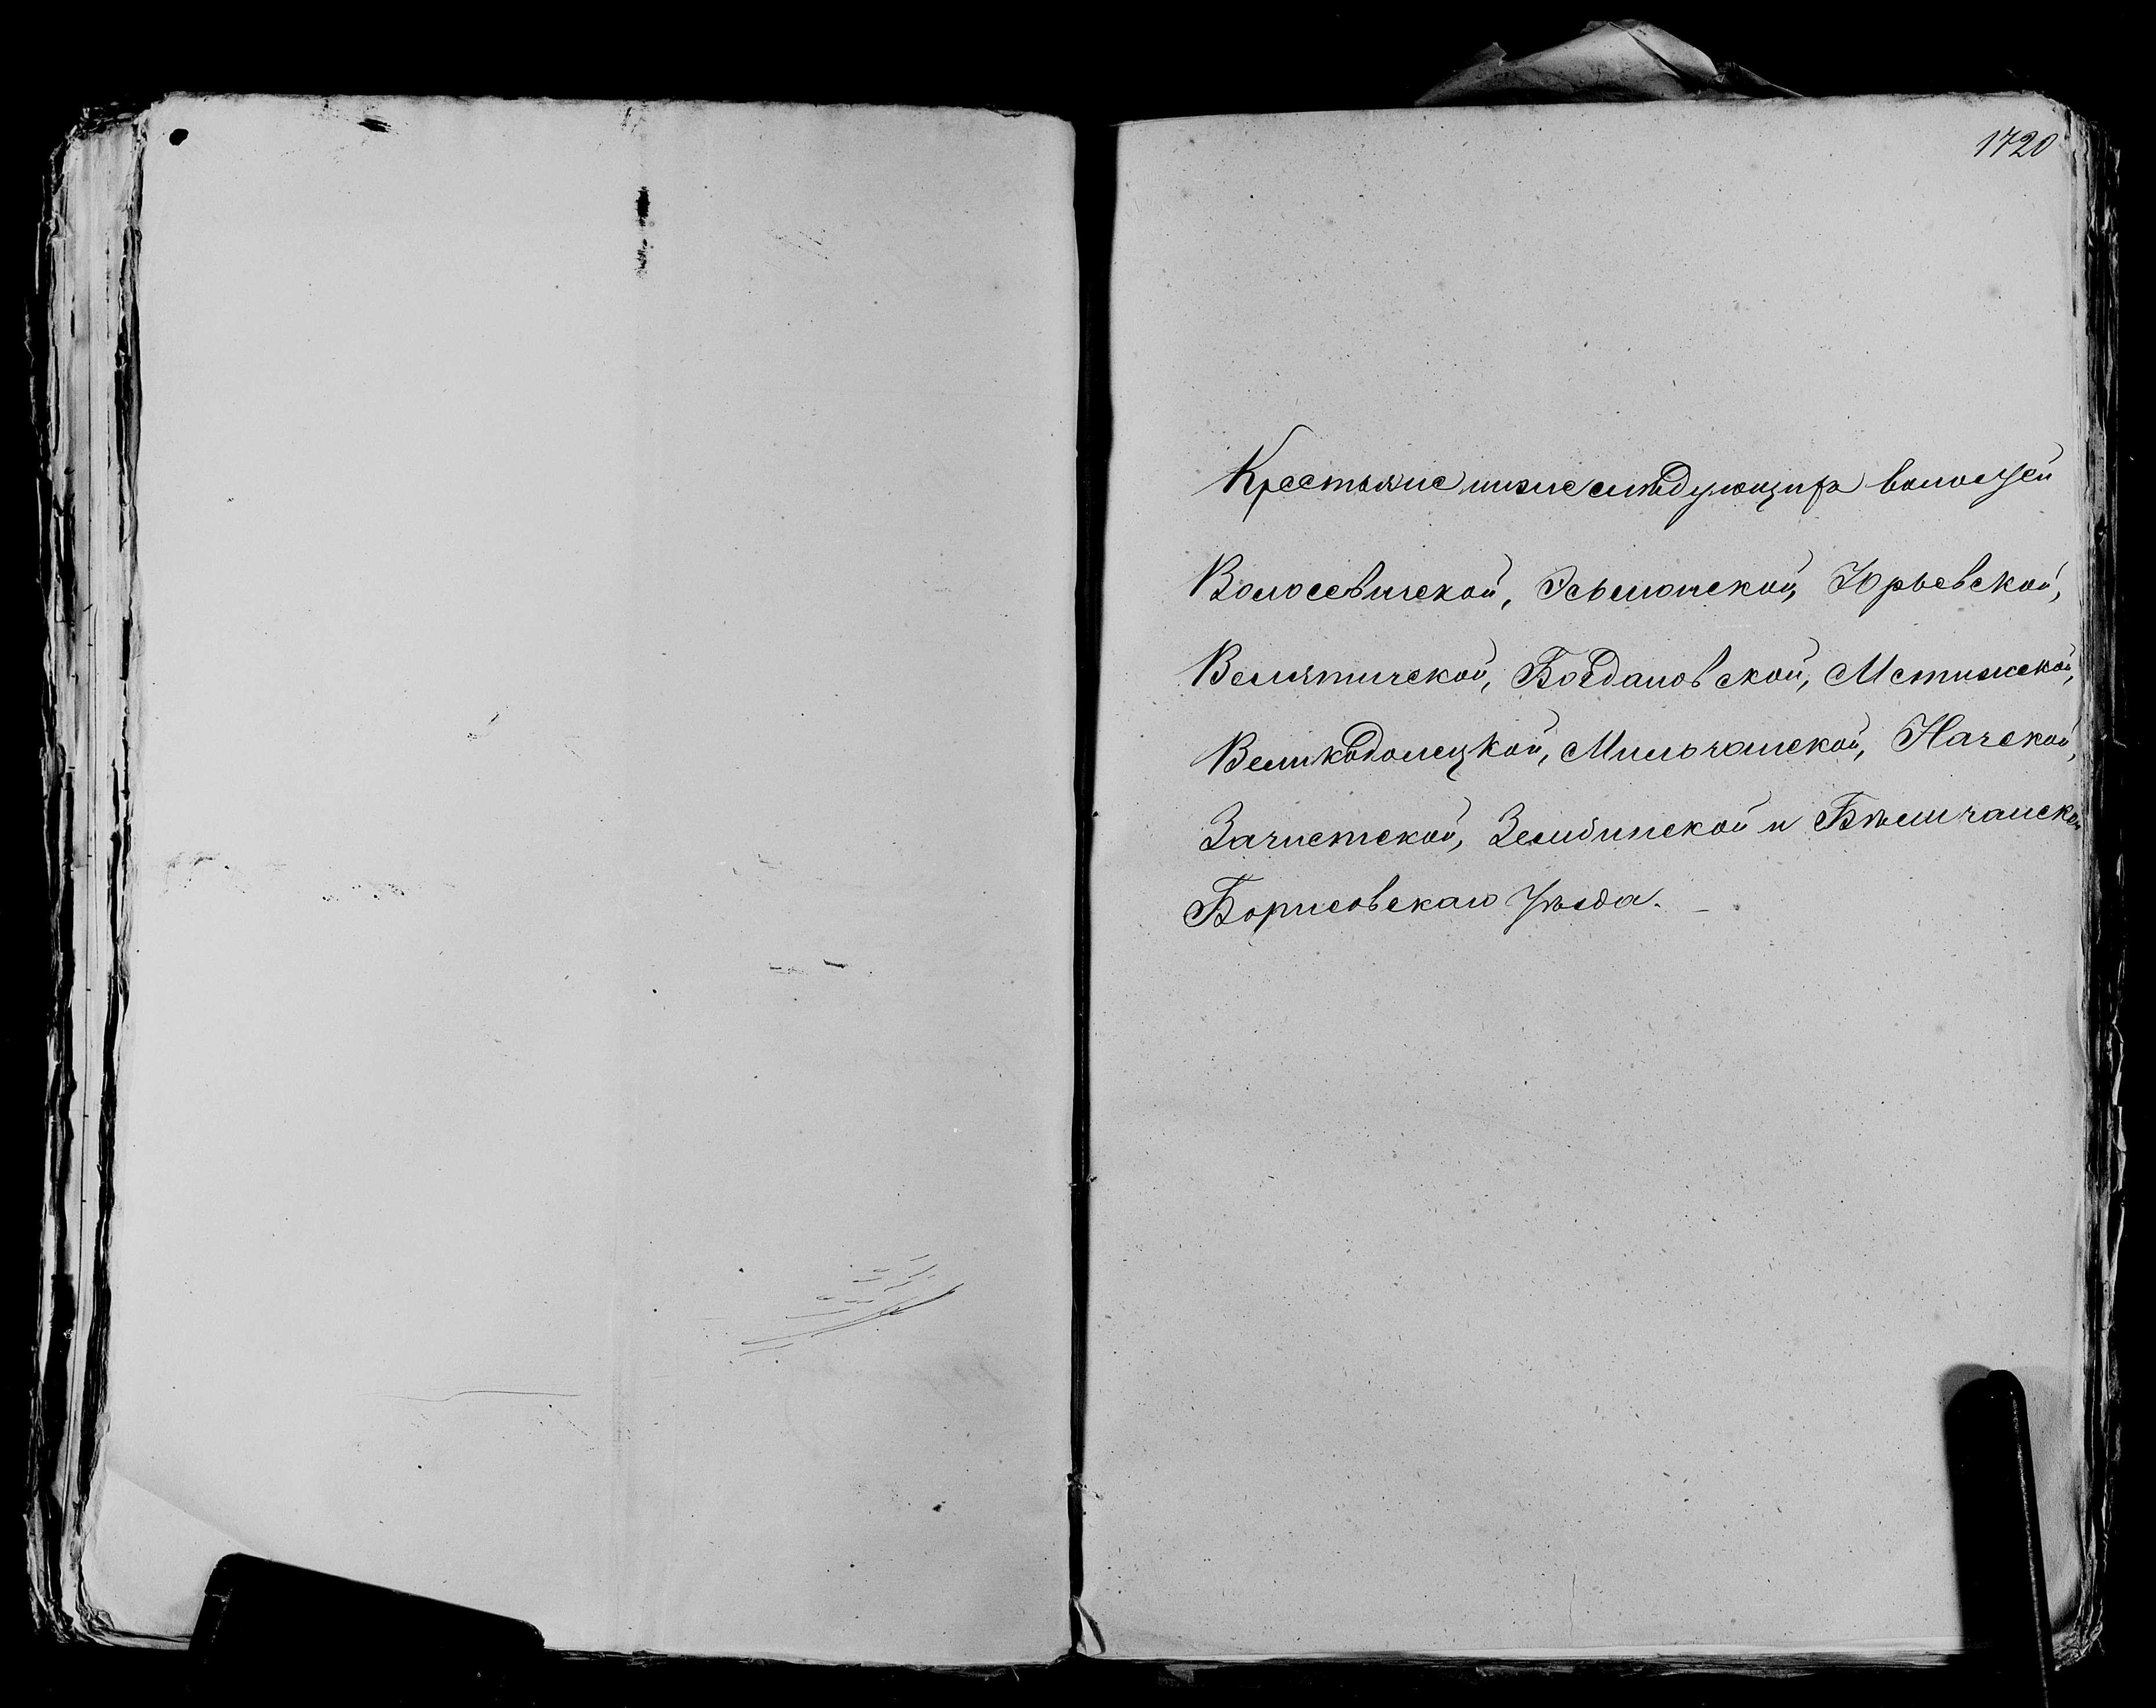 1720
Крестьяне нижеслѣдующихъ волостей
Волосевичской, Эсьмонской, Юрьевской,
Велятичской, Богдановской, Мстижской,
Великодолецкой, Мильчанской, Начской,
Зачистской, Зембинской и Бѣличанской
Борисовскаго Уѣзда.